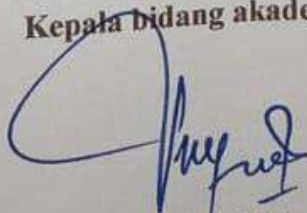 Kepala bidang akade